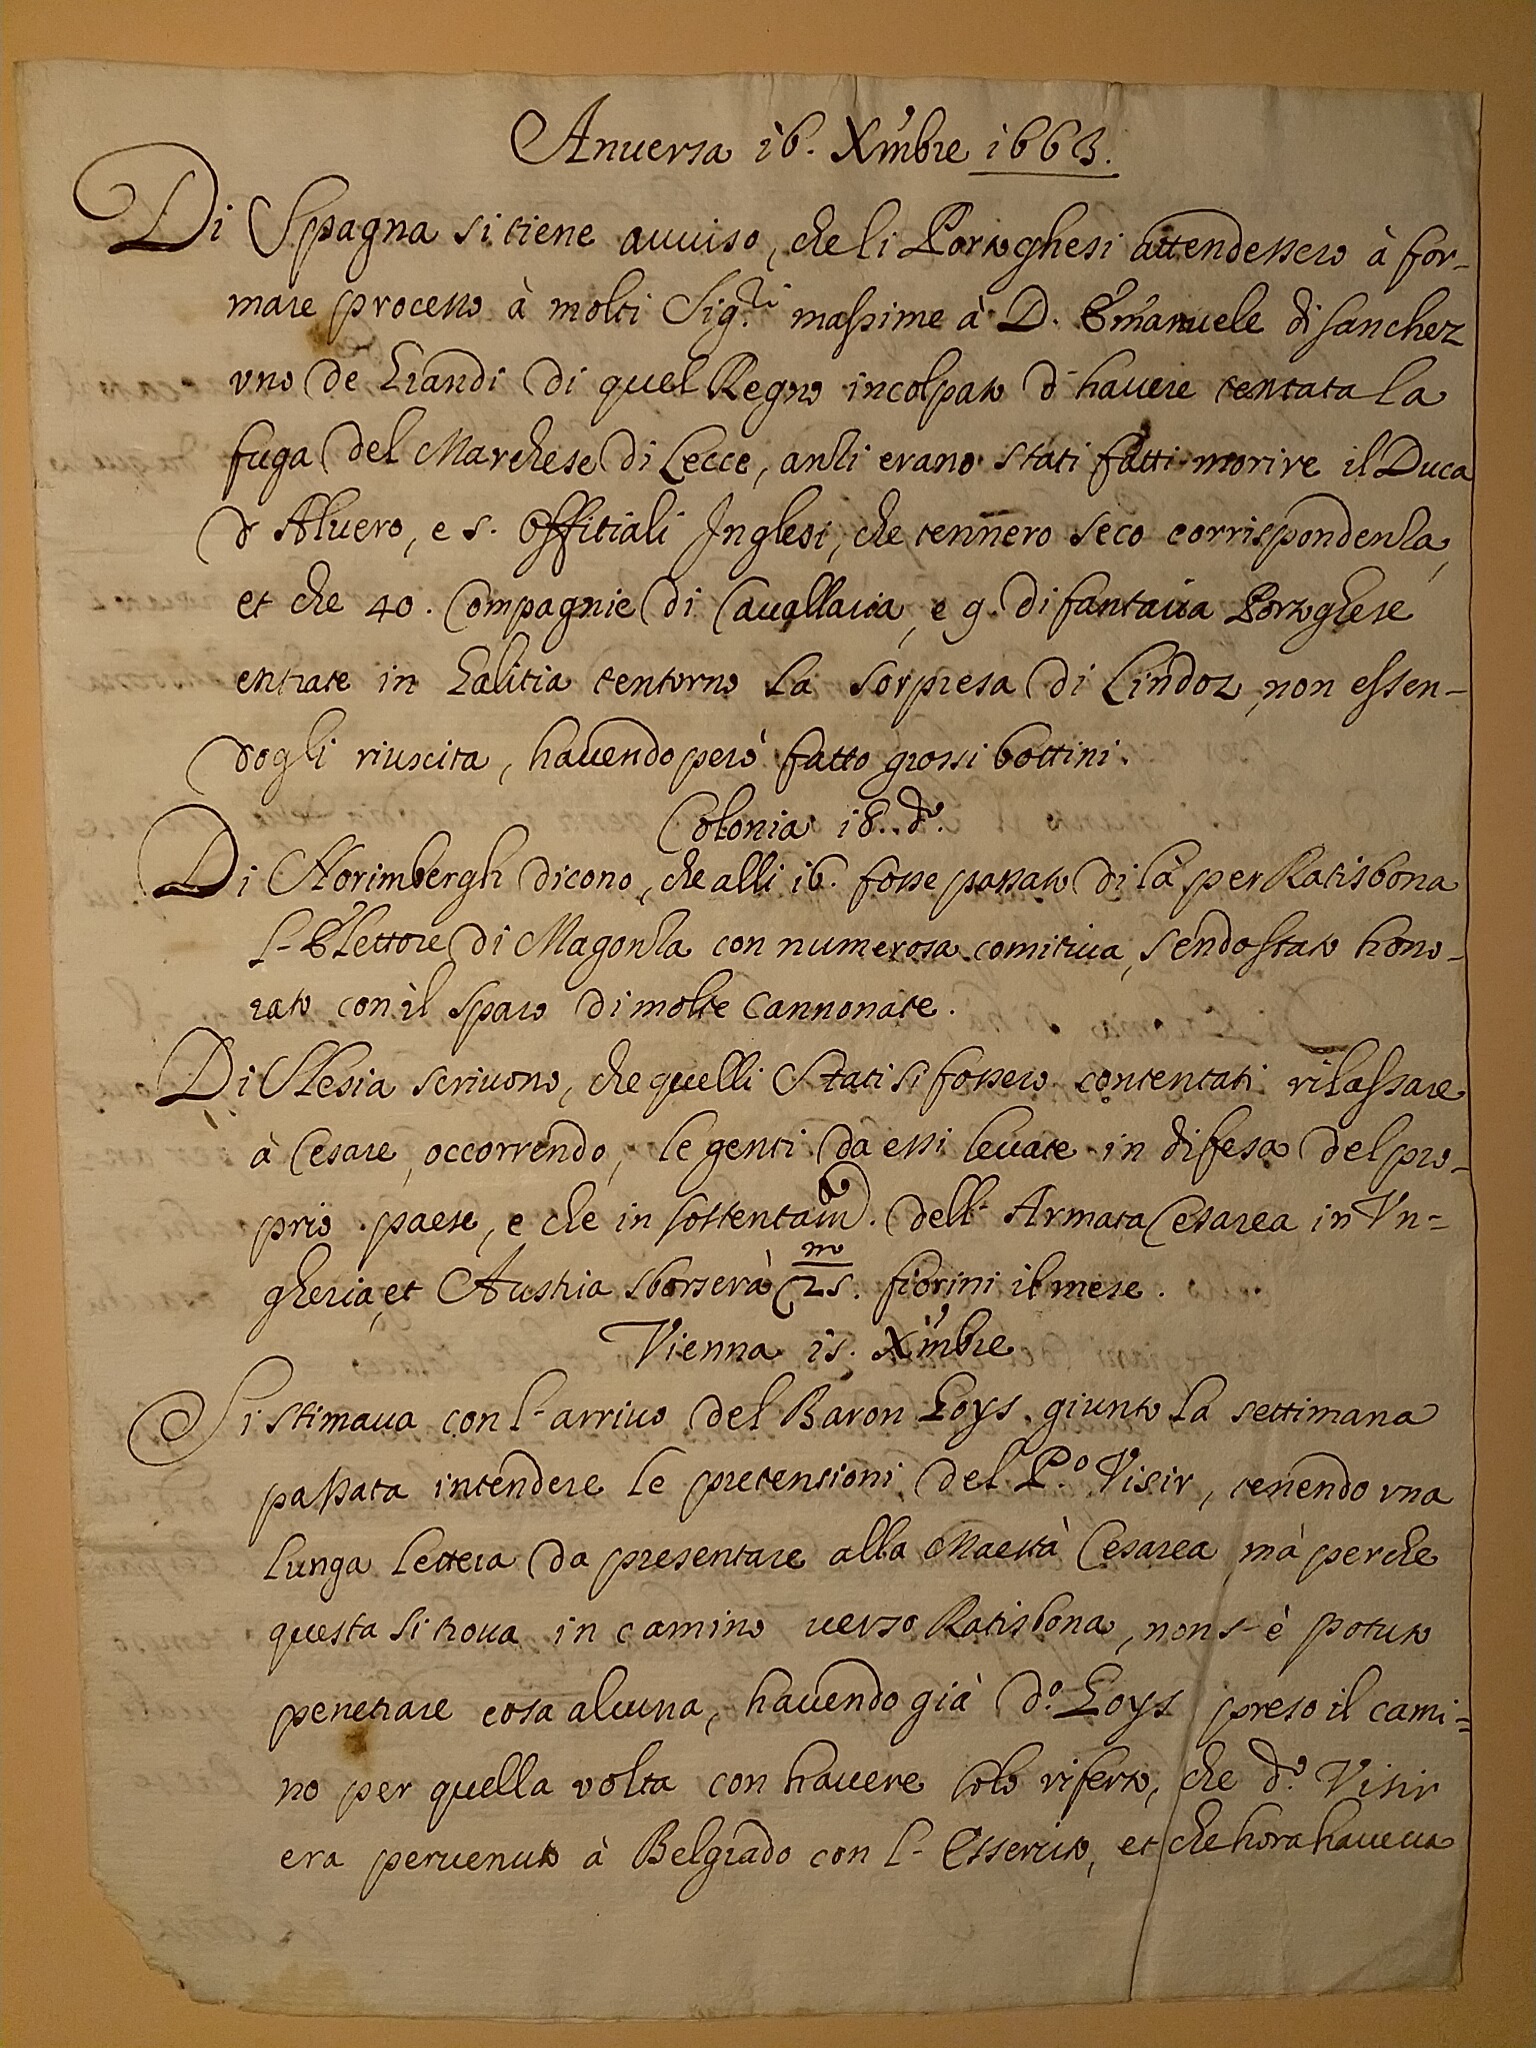 Anuersa 16. Xmbre 1663.
Di Spagna si tiene auuiso, che li Portoghesi attendessero à for-
mare processo à molti Sig.ri massime à D. Emanuele di Sanchez
uno de Grandi di quel Regno incolpato d'hauere tentata la
fuga del Marchese di Lecce, anzi erano stati fatti morire il Duca
d'Aluero, e 5. Offitiali Inglesi, che tennero seco corrispondenza,
et che 40. Compagnie di Cauallaria, e 9. di fantaria Portoghese
entrate in Galitia tentorno la sorpresa di Lindoz, non essen-
dogli riuscita, hauendo però fatto grossi bottini.
Colonia 18. do.
Di Norimbergh dicono, che alli 16. fosse passato di là per Ratisbona
l'Elettore di Magonza con numerosa comitiua, sendo stato hono-
rato con il sparo di molte cannonate.
Di Slesia scriuono, che quelli Stati si fossero contentati rilassare
à Cesare, occorrendo, le genti da essi leuate in difesa del pro-
prio paese, e che in sostentam. dell'Armata Cesarea in Vn=
gheria, et Austria sborserà 25 m. fiorini il mese.
Vienna 15. Xmbre
Si stimaua con l'arriuo del Baron Goys giunto la settimana
passata intendere le pretensioni del P.o Visir, tenendo una
lunga lettera da presentare alla Maestà Cesarea, mà perche
questa si troua in camino uerso Ratisbona, non s'è potuto
penetrare cosa alcuna, hauendo già d.o Goys preso il cami=
no per quella volta con hauere solo riferto, che d.o Visir
era peruenuto à Belgrado con l'Essercito, et che hora haueua